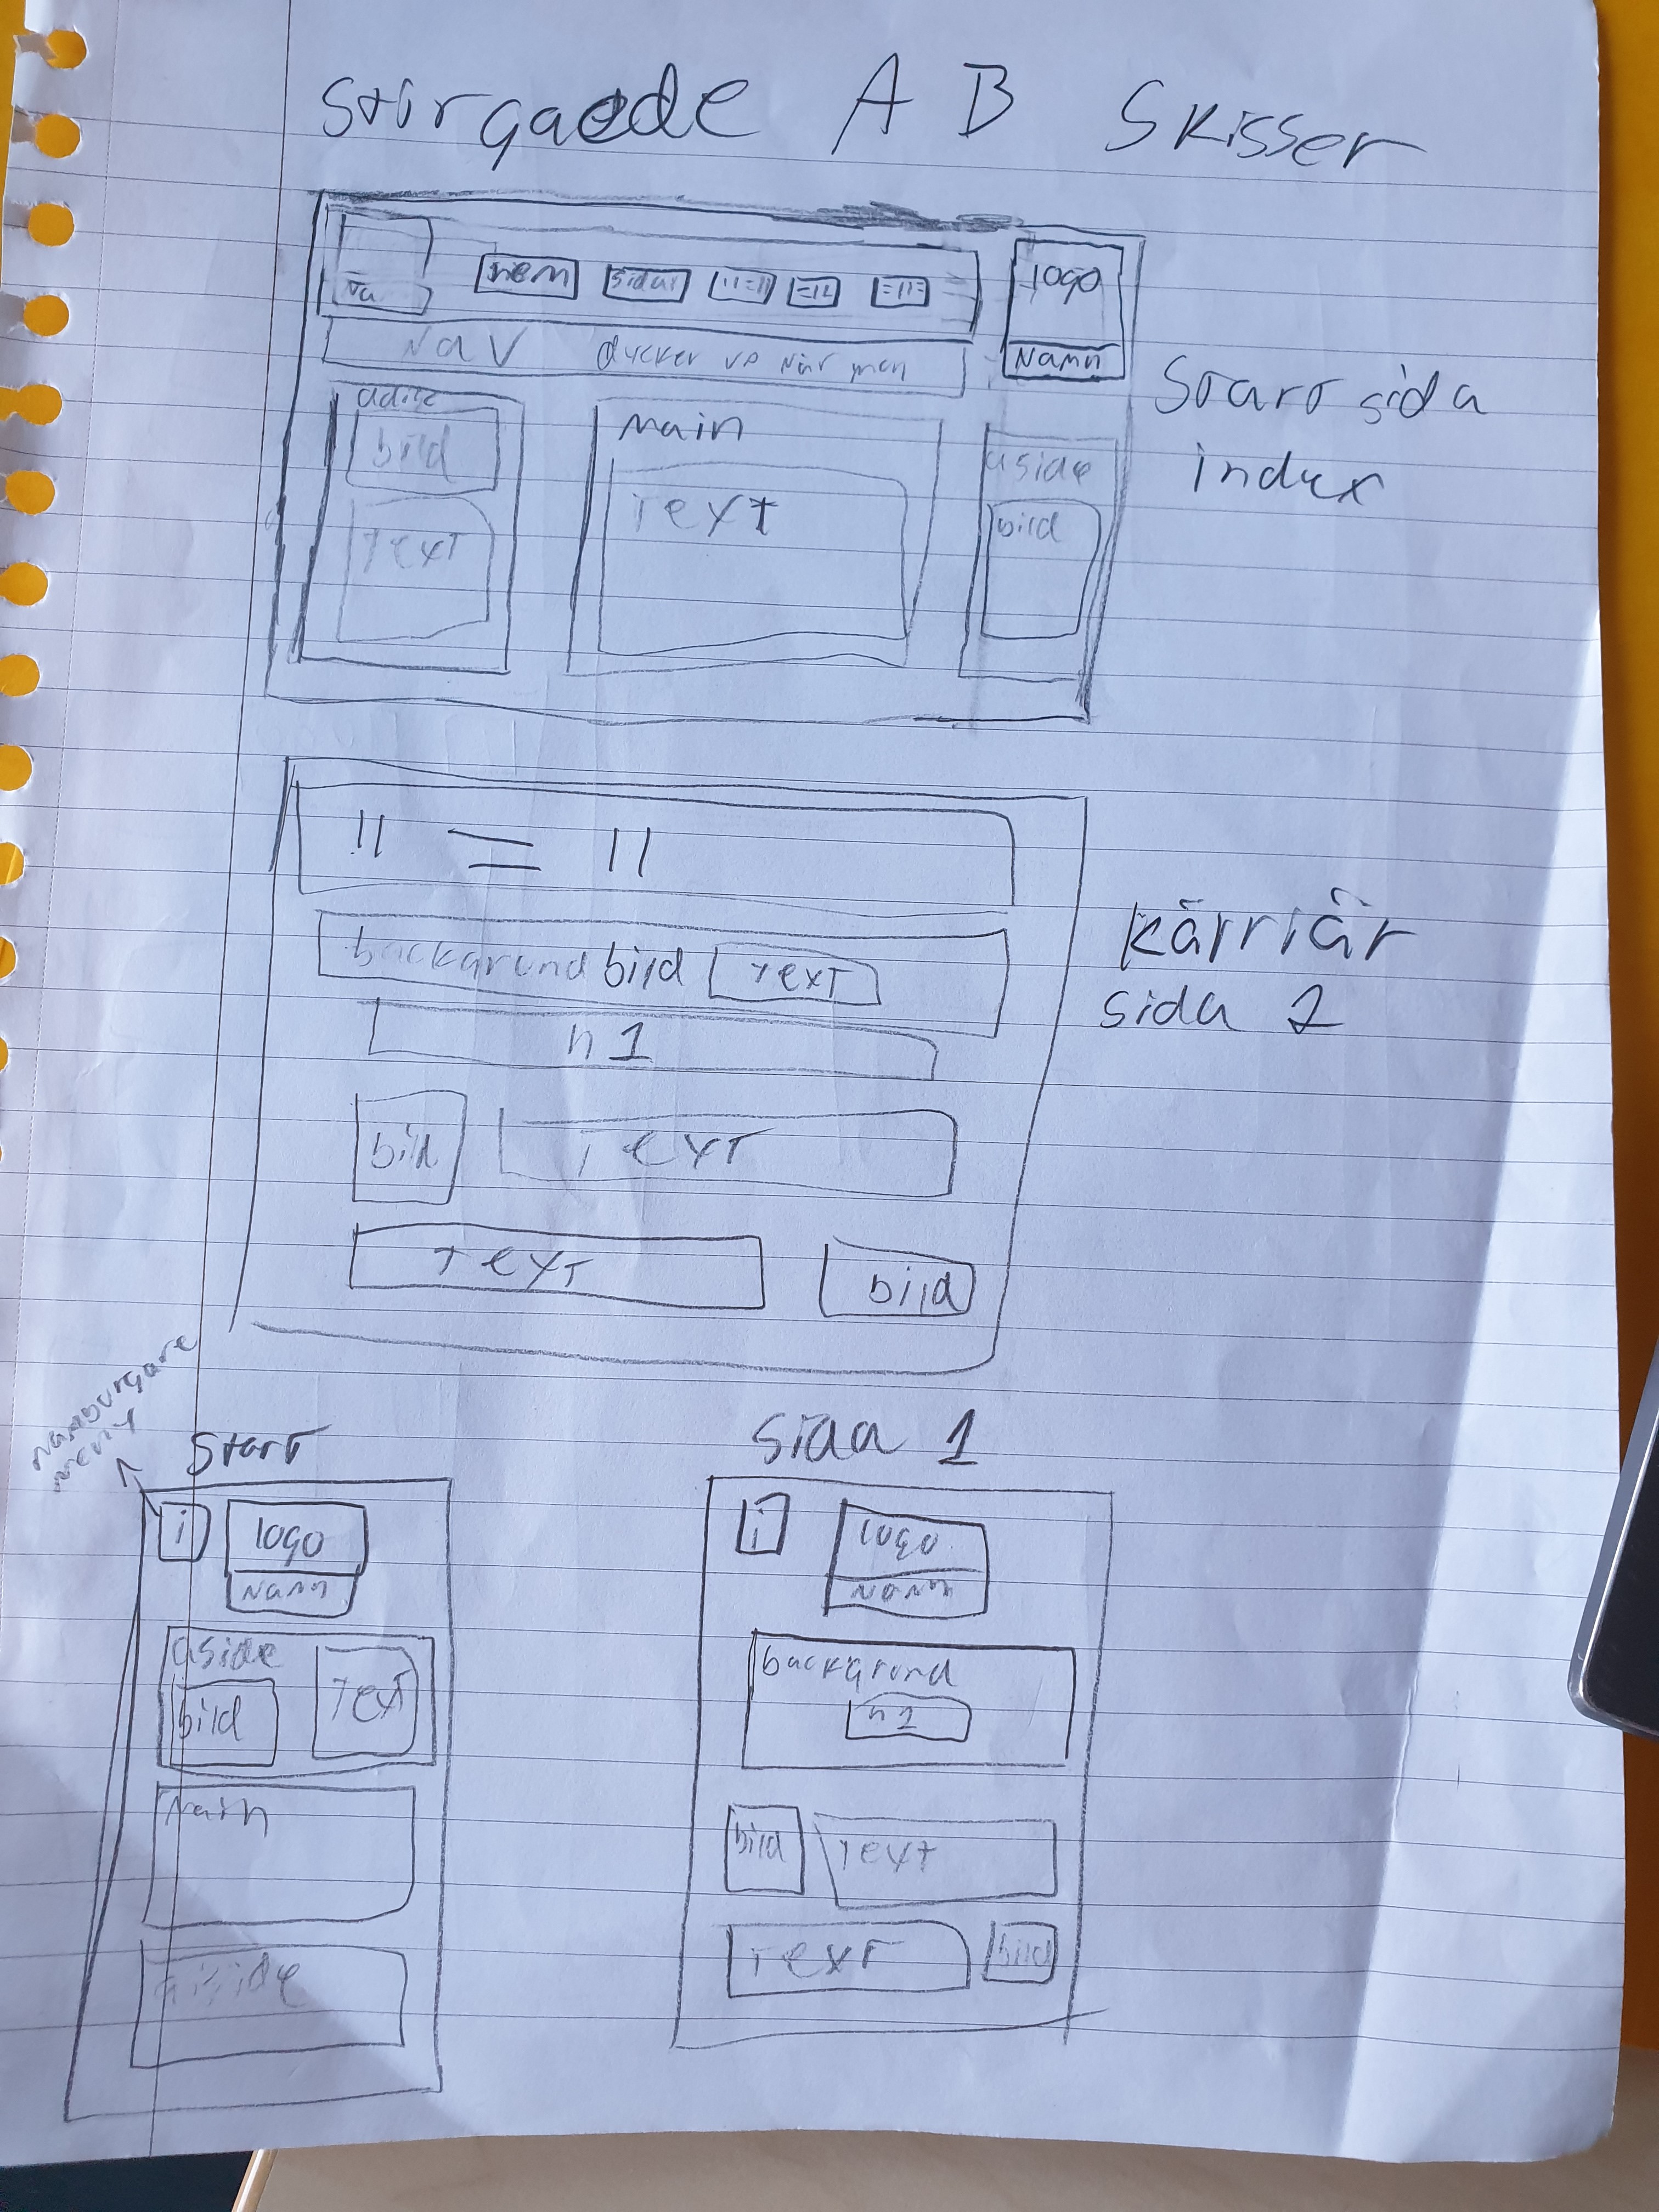 AB Skisser
hem sidor 11=11 =11 =11=
logo
Namn
Nav dycker up när man
Start sida
index
bild
Text
Main
Text
aside
bild
11 = 11
backgrund bild Text
h1
bild Text
Text bild
kärriär
sida 2
hamburgare
meny
Start
i logo
Namn
aside
bild Text
Main
aside
sida 1
i logo
Namn
backgrund
h1
bild Text
Text bild